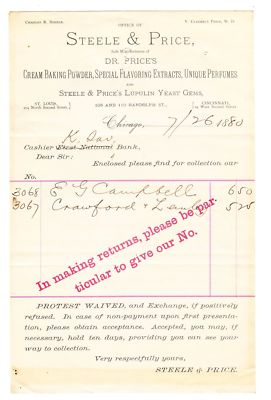 CHARLES R. STEELE.
OFFICE OF
V. CLARENCE PRICE, M. D.
STEELE & PRICE,
Sole Manufacturers of
DR. PRICE'S
CREAM BAKING POWDER, SPECIAL FLAVORING EXTRACTS, UNIQUE PERFUMES
AND
STEELE & PRICE'S LUPULIN YEAST GEMS,
ST. LOUIS,
CINCINNATI,
204 North Second Street.
108 AND 110 RANDOLPH ST.,
Chicago, 7/26 1880
Cashier First National Bank,
Dear Sir:
Enclosed please find for collection our
No.
3068 E G Campbell 650
3067 Crawford & 525
In making returns, please be par-
ticular to give our No.
PROTEST WAIVED, and Exchange, if positively
refused. In case of non-payment upon first presenta-
tion, please obtain acceptance. Accepted, you may, if
necessary, hold ten days, providing you can see your
way to collection.
Very respectfully yours,
STEELE & PRICE.